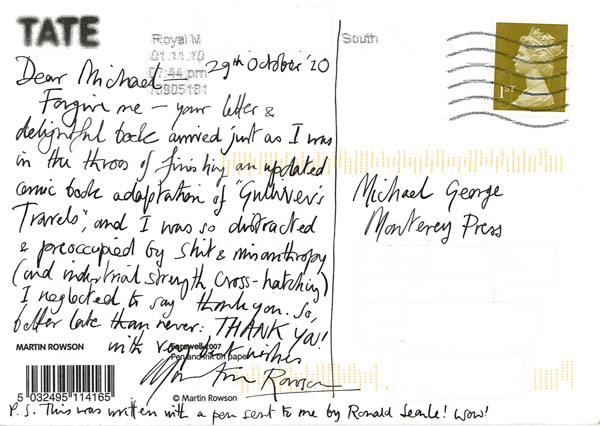 TATE
Royal M
01.11.10
07:44 pm
South
1ST
Dear Michael 29th October '10
Forgive me – your letter &
delightful book arrived just as I was
in the throes of finishing an updated
comic book adaptation of "Gulliver's
Travels", and I was so distracted
& preoccupied by shit & misanthropy
(and industrial strength cross-hatching)
I neglected to say thank you. So,
better late than never: THANK YOU!
with very best wishes
Martin Rowson
MARTIN ROWSON
2007
Pen and ink on paper
5 032495 114165
© Martin Rowson
P.S. This was written with a pen sent to me by Ronald Searle! Wow!
Michael George
Monterey Press